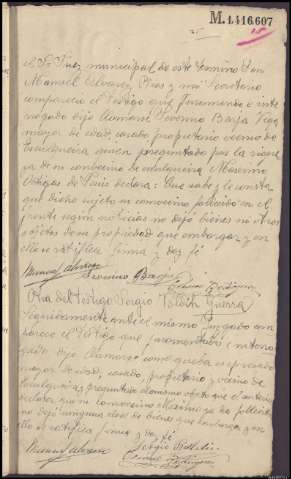 M.1416607
el Sr Juez municipal de este termino Don
Manuel Alvarez Pres y mi Secretario
comparecio el testigo que juramentado e inte
rrogado dijo llamarse Severino Barja Vega
mayor de edad, casado propietario vecino de
quien preguntado por la viuda
de su convecino de Maximino
declara: Que sabe y le consta
que dicho sujeto su convecino fallecido en el
frente segun noticias no dejó bienes ni otros
objetos de su propiedad que embargar y en
ello se ratifica firma y doy fé
Manuel Alvarez Severino Barja
Otra del testigo Sergio Guerra
Seguidamente ante el mismo Juzgado com
parecio el testigo que juramentado e interro
gado dijo llamarse como queda expresado
mayor de edad, casado, propietario y vecino de
y preguntado al mismo objeto que el anterior
declara que su convecino Maximino ha fallecido
no dejo ninguna clase de bienes que embargar y en
ello se ratifica firma y doy fé
Manuel Alvarez Sergio